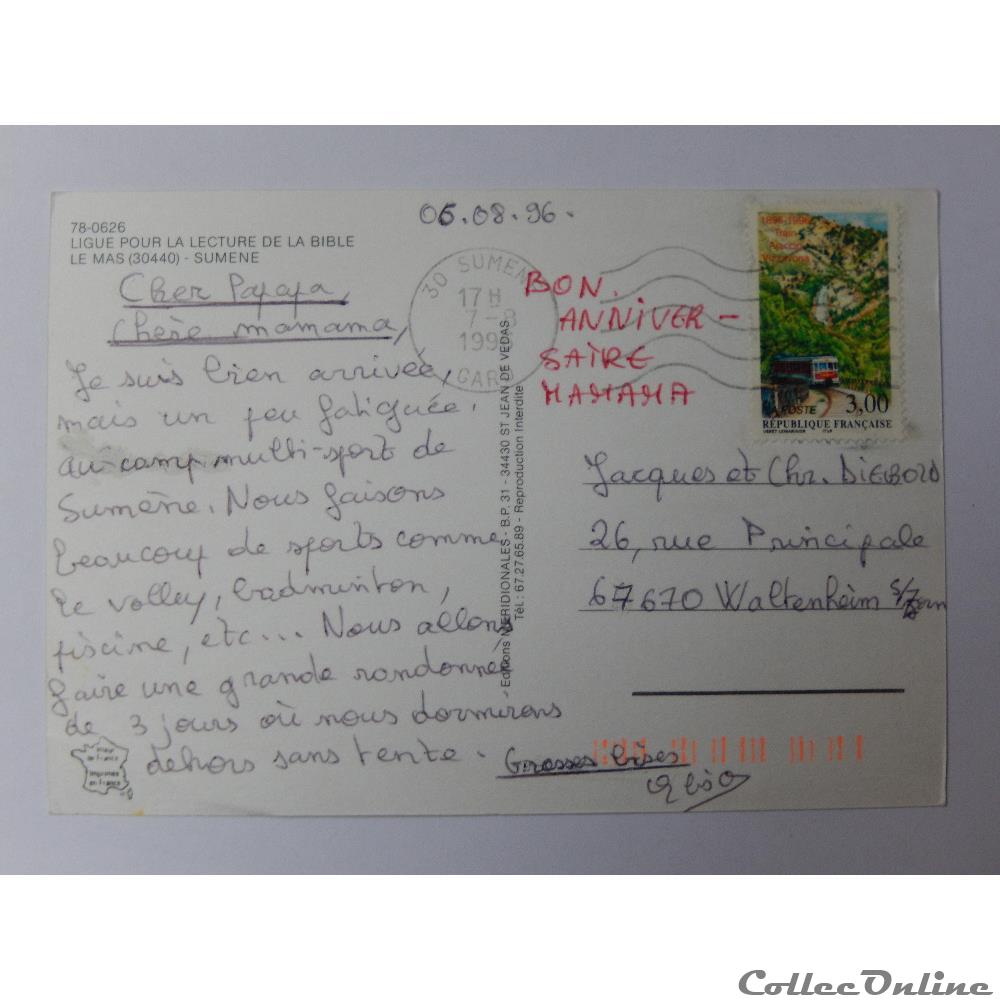 06.08.96.
78-0626
LIGUE POUR LA LECTURE DE LA BIBLE
LE MAS (30440) - SUMENE
Cher Papapa,
Chère mamama,
Je suis bien arrivée,
mais un peu fatiguée,
au camp multi-sport de
Sumène. Nous faisons
beaucoup de sports comme
le volley, badminton,
piscine, etc... Nous allons
faire une grande randonnée
de 3 jours où nous dormirons
dehors sans tente.
Grosses bises
30 SUMENE
17H
7-8
1996
GARD
BON.
ANNIVER-
SAIRE
MAMAMA
1896-1996
Train
Ajaccio
Vizzavona
POSTE 3,00
RÉPUBLIQUE FRANÇAISE
Jacques et Chr. DIEBOLD
26, rue Principale
67670 Waltenheim s/Zorn
Editions MERIDIONALES - B.P. 31 - 34430 ST JEAN DE VEDAS
Tél : 67.27.65.89 - Reproduction Interdite
imprimée
en France
CollecOnline